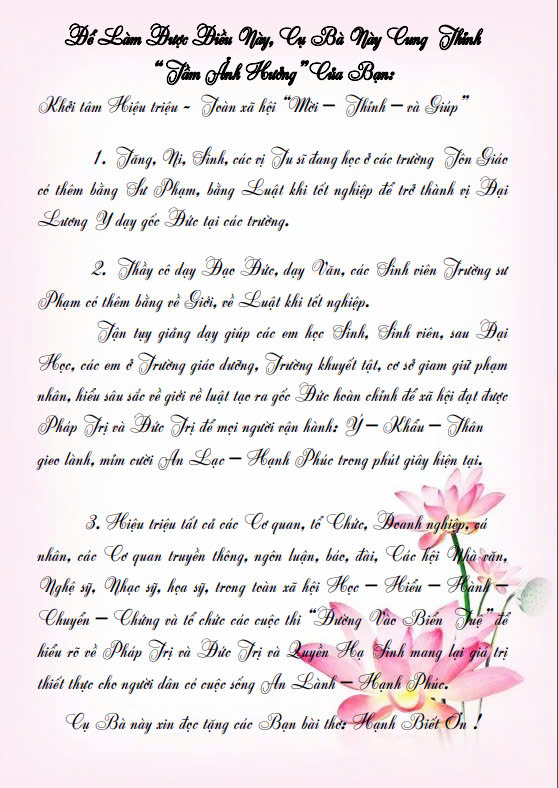 Để Làm Được Điều Này, Cụ Bà Này Cung Thỉnh
“Tầm Ảnh Hưởng” Của Bạn:
Khởi tâm Hiệu triệu - Toàn xã hội “Mời – Thỉnh – và Giúp”
1. Tăng, Ni, Sinh, các vị Tu sĩ đang học ở các trường Tôn Giáo
có thêm bằng Sư Phạm, bằng Luật khi tốt nghiệp để trở thành vị Đại
Lương Y dạy gốc Đức tại các trường.
2. Thầy cô dạy Đạo Đức, dạy Văn, các Sinh viên Trường sư
Phạm có thêm bằng về Giới, về Luật khi tốt nghiệp.
Tận tụy giảng dạy giúp các em học Sinh, Sinh viên, sau Đại
Học, các em ở Trường giáo dưỡng, Trường khuyết tật, cơ sở giam giữ phạm
nhân, hiểu sâu sắc về giới về luật tạo ra gốc Đức hoàn chỉnh để xã hội đạt được
Pháp Trị và Đức Trị để mọi người vận hành: Ý – Khẩu – Thân
gieo lành, mỉm cười An Lạc – Hạnh Phúc trong phút giây hiện tại.
3. Hiệu triệu tất cả các Cơ quan, tổ Chức, Doanh nghiệp, cá
nhân, các Cơ quan truyền thông, ngôn luận, báo, đài, Các hội Nhà văn,
Nghệ sỹ, Nhạc sỹ, họa sỹ, trong toàn xã hội Học – Hiểu – Hành –
Chuyển – Chứng và tổ chức các cuộc thi “Đường Vào Biển Tuệ” để
hiểu rõ về Pháp Trị và Đức Trị và Quyền Hạ Sinh mang lại giá trị
thiết thực cho người dân có cuộc sống An Lành – Hạnh Phúc.
Cụ Bà này xin đọc tặng các Bạn bài thơ: Hạnh Biết Ơn !